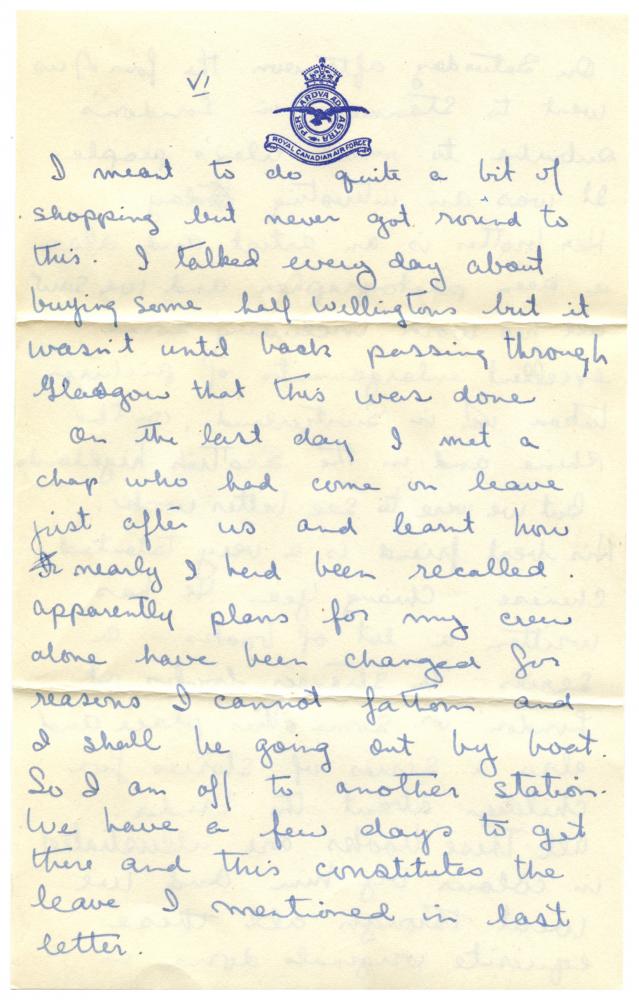 VI
PER ARDVA AD ASTRA
ROYAL CANADIAN AIR FORCE
I meant to do quite a bit of
shopping but never got round to
this. I talked every day about
buying some half Wellingtons but it
wasn't until back passing through
Glasgow that this was done
On the last day I met a
chap who had come on leave
just after us and learnt how
nearly I had been recalled.
Apparently plans for my crew
alone have been changed for
reasons I cannot fathom and
I shall be going out by boat.
So I am off to another station.
We have a few days to get
there and this constitutes the
leave I mentioned in last
letter.